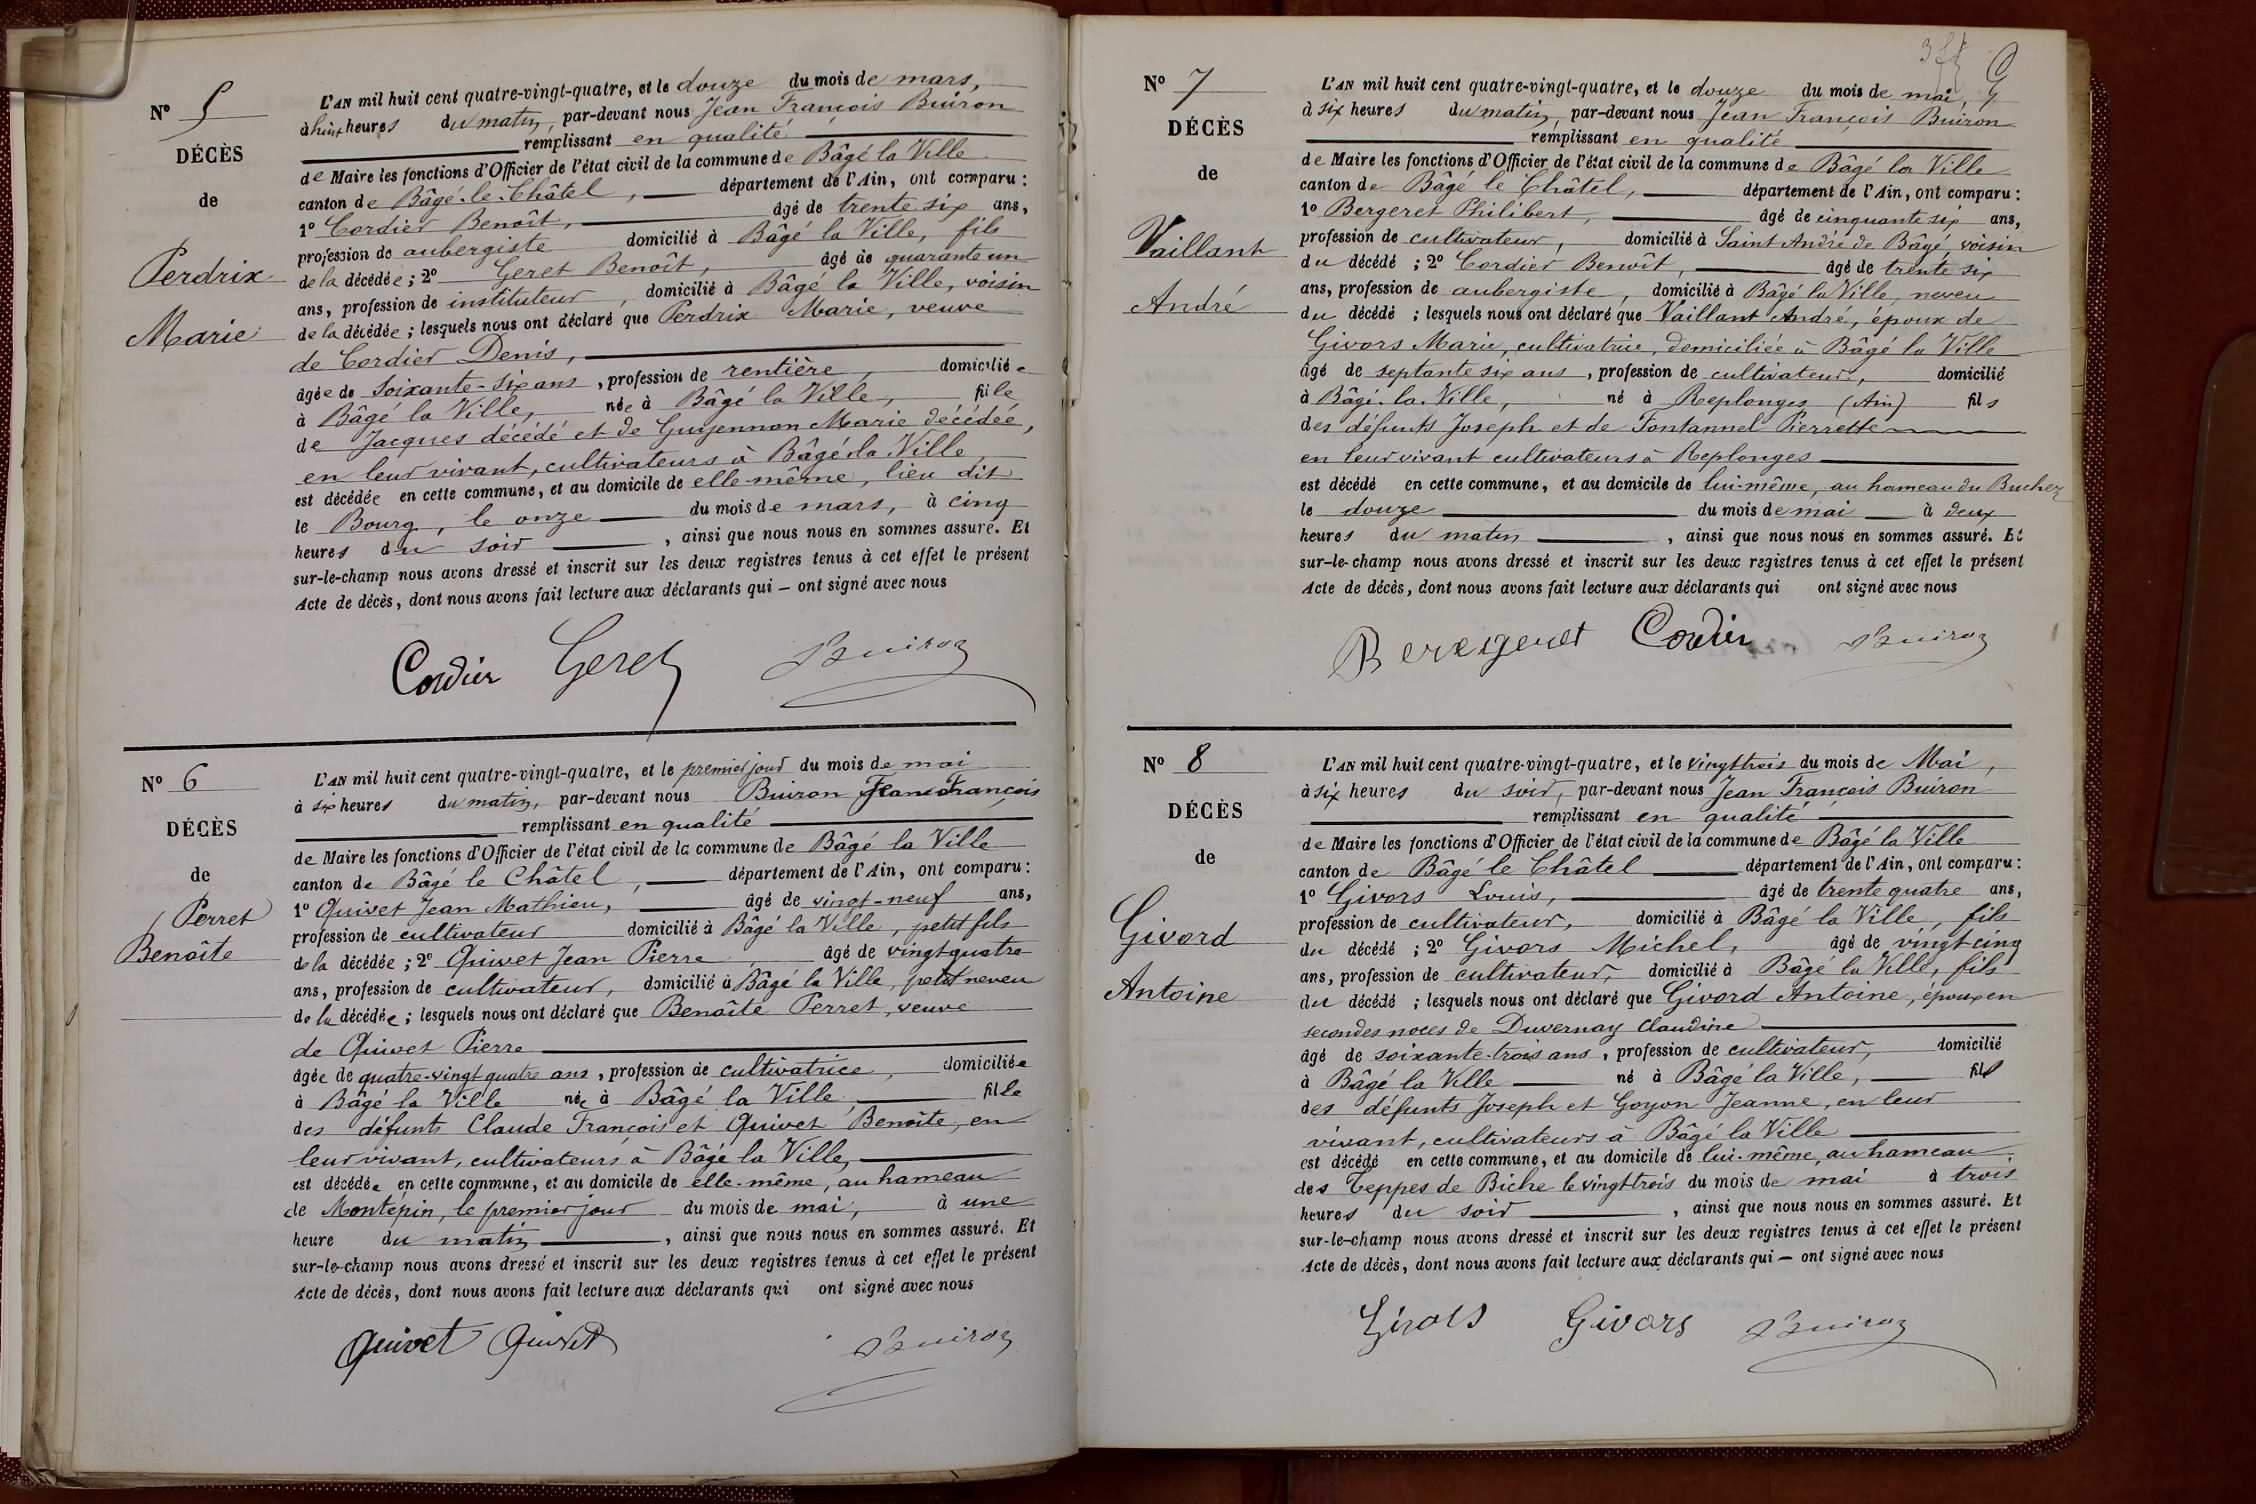 N° 5
DÉCÈS
de
Perdrix
Marie
L'AN mil huit cent quatre-vingt-quatre, et le douze du mois de mars,
à huit heures du matin, par-devant nous Jean François Buiron
remplissant en qualité
de Maire les fonctions d'Officier de l'état civil de la commune de Bâgé la Ville
canton de Bâgé-le-Châtel, département de l'Ain, ont comparu :
1° Cordier Benoît, âgé de trente six ans,
profession de aubergiste domicilié à Bâgé la Ville, fils
de la décédée ; 2° Geret Benoît, âgé de quarante un
ans, profession de instituteur, domicilié à Bâgé la Ville, voisin
de la décédée ; lesquels nous ont déclaré que Perdrix Marie, veuve
de Cordier Denis,
âgée de soixante-six ans, profession de rentière, domiciliée
à Bâgé la Ville, née à Bâgé la Ville, fille
de Jacques décédé et de Guyennon Marie décédée,
en leur vivant, cultivateurs à Bâgé la Ville
est décédée en cette commune, et au domicile de elle-même, lieu dit
le Bourg, le onze du mois de mars, à cinq
heures du soir, ainsi que nous nous en sommes assuré. Et
sur-le-champ nous avons dressé et inscrit sur les deux registres tenus à cet effet le présent
Acte de décès, dont nous avons fait lecture aux déclarants qui — ont signé avec nous
Cordier Geret Buiron
N° 6
DÉCÈS
de
Perret
Benoîte
L'AN mil huit cent quatre-vingt-quatre, et le premier jour du mois de mai
à six heures du matin, par-devant nous Buiron Jean François
remplissant en qualité
de Maire les fonctions d'Officier de l'état civil de la commune de Bâgé la Ville
canton de Bâgé le Châtel, département de l'Ain, ont comparu :
1° Quivet Jean Mathieu, âgé de vingt-neuf ans,
profession de cultivateur domicilié à Bâgé la Ville, petit fils
de la décédée ; 2° Quivet Jean Pierre âgé de vingt quatre
ans, profession de cultivateur, domicilié à Bâgé la Ville, petit neveu
de la décédée ; lesquels nous ont déclaré que Benoîte Perret, veuve
de Quivet Pierre
âgée de quatre-vingt quatre ans, profession de cultivatrice, domiciliée
à Bâgé la Ville née à Bâgé la Ville, fille
des défunts Claude François et Quivet Benoîte, en
leur vivant, cultivateurs à Bâgé la Ville,
est décédée en cette commune, et au domicile de elle-même, au hameau
de Montépin, le premier jour du mois de mai, à une
heure du matin, ainsi que nous nous en sommes assuré. Et
sur-le-champ nous avons dressé et inscrit sur les deux registres tenus à cet effet le présent
Acte de décès, dont nous avons fait lecture aux déclarants qui ont signé avec nous
Quivet Quivet Buiron
N° 7
DÉCÈS
de
Vaillant
André
L'AN mil huit cent quatre-vingt-quatre, et le douze du mois de mai,
à six heures du matin, par-devant nous Jean François Buiron
remplissant en qualité
de Maire les fonctions d'Officier de l'état civil de la commune de Bâgé la Ville
canton de Bâgé le Châtel, département de l'Ain, ont comparu :
1° Bergeret Philibert, âgé de cinquante six ans,
profession de cultivateur, domicilié à Saint André de Bâgé, voisin
du décédé ; 2° Cordier Benoît, âgé de trente six
ans, profession de aubergiste, domicilié à Bâgé la Ville, neveu
du décédé ; lesquels nous ont déclaré que Vaillant André, époux de
Givors Marie, cultivatrice, domiciliée à Bâgé la Ville
âgé de septante six ans, profession de cultivateur, domicilié
à Bâgé-la-Ville, né à Replonges (Ain) fils
des défunts Joseph et de Fontannel Pierrette
en leur vivant cultivateurs à Replonges
est décédé en cette commune, et au domicile de lui-même, au hameau du Buchez
le douze du mois de mai à deux
heures du matin, ainsi que nous nous en sommes assuré. Et
sur-le-champ nous avons dressé et inscrit sur les deux registres tenus à cet effet le présent
Acte de décès, dont nous avons fait lecture aux déclarants qui ont signé avec nous
Berexgeret Cordier Buiron
N° 8
DÉCÈS
de
Givord
Antoine
L'AN mil huit cent quatre-vingt-quatre, et le vingt trois du mois de Mai,
à six heures du soir, par-devant nous Jean François Buiron
remplissant en qualité
de Maire les fonctions d'Officier de l'état civil de la commune de Bâgé la Ville
canton de Bâgé le Châtel département de l'Ain, ont comparu :
1° Givors Louis, âgé de trente quatre ans,
profession de cultivateur, domicilié à Bâgé la Ville, fils
du décédé ; 2° Givors Michel, âgé de vingt-cinq
ans, profession de cultivateur, domicilié à Bâgé la Ville, fils
du décédé ; lesquels nous ont déclaré que Givord Antoine, époux en
secondes noces de Duvernay Claudine
âgé de soixante-trois ans, profession de cultivateur, domicilié
à Bâgé la Ville né à Bâgé la Ville, fils
des défunts Joseph et Goyon Jeanne, en leur
vivant, cultivateurs à Bâgé la Ville
est décédé en cette commune, et au domicile de lui-même, au hameau
des Teppes de Biche le vingt trois du mois de mai à trois
heures du soir, ainsi que nous nous en sommes assuré. Et
sur-le-champ nous avons dressé et inscrit sur les deux registres tenus à cet effet le présent
Acte de décès, dont nous avons fait lecture aux déclarants qui — ont signé avec nous
Givors Givors Buiron